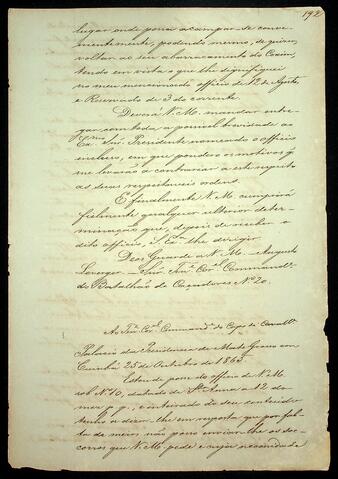 192
lugar onde possa acampar-se conve-
nientemente, podendo mesmo, se quizer,
voltar ao seu abarracamento do Coxim,
tendo em vista o que lhe signifiquei
no meu mencionado officio de 12 de Agosto,
e Reservado de 3 do corrente.
Deverá V. M. mandar entre-
gar com toda a possivel brevidade ao
Exmo Snr. Presidente nomeado o officio
incluso, em que pondero os motivos q'
me levarão a contrariar a este respeito
as suas respeitaveis ordens.
E finalmente V. M. cumprirá
fielmente qualquer ulterior deter-
minação que, depois de receber o
dito officio, S. Exa lhe dirigir.
Deos Guarde a V. M. - Augusto
Leverger - Snr. Tene Corel Commande
do Batalhão de Caçadores No 20.
Ao Tene Corel Commande do Corpo de Cavallaa
Palacio da Presidencia de Mato Grosso em
Cuiabá 25 de Outubro de 1865.
Estou de posse do officio de V. M.
sob No 10, datado de Sta Anna a 12 do
mez p. p., e inteirado do seu conteúdo
tenho a dizer-lhe em resposta que por fal-
ta de meios não posso enviar-lhe os soc-
corros que V. M. pede e cuja necessidade